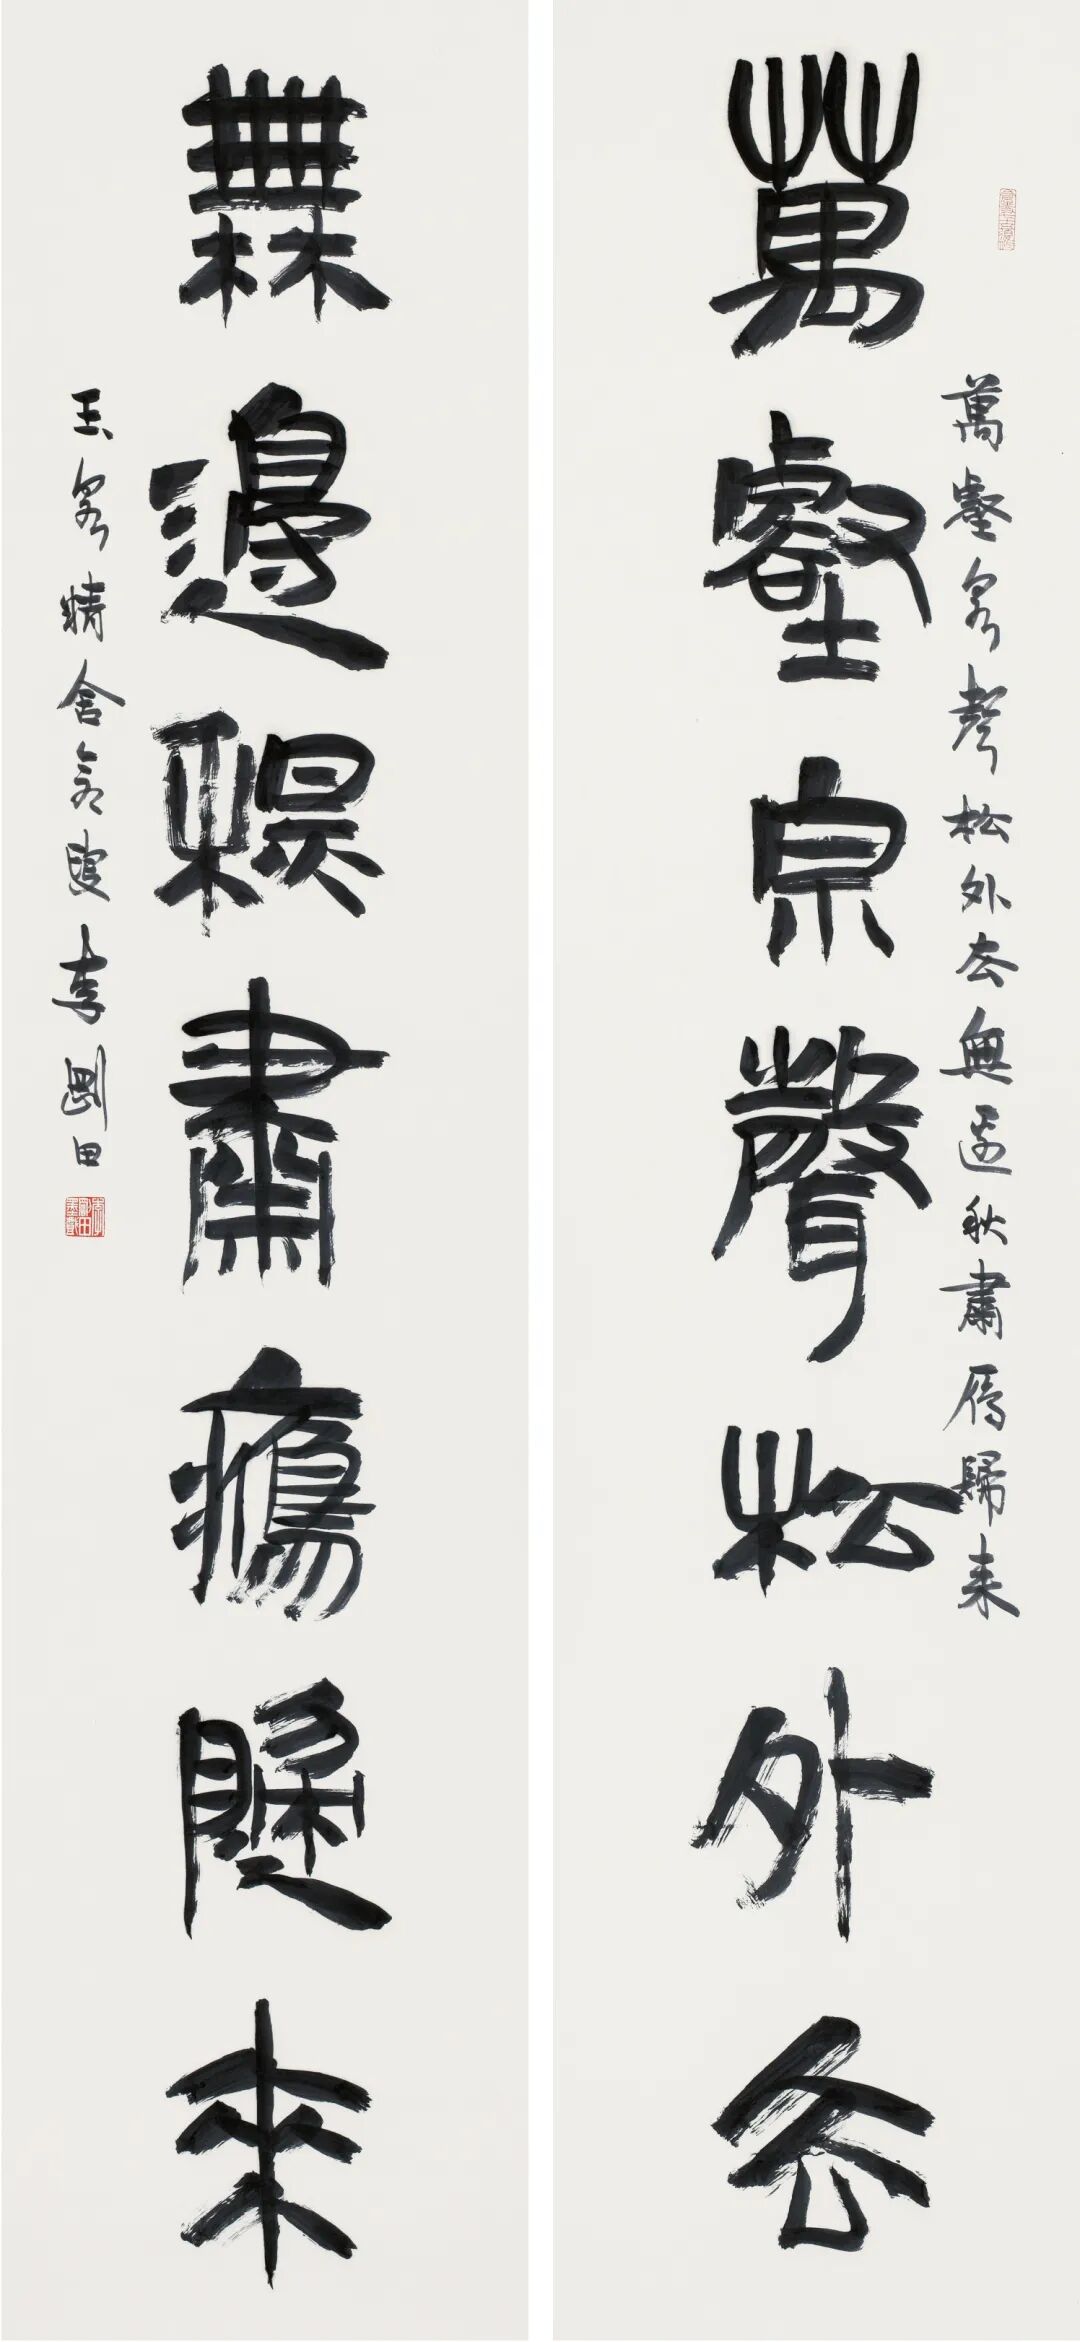 萬壑泉聲松外去
萬壑泉聲松外去無邊秋肅雁歸來
無邊秋肅雁歸來
玉泉精舍倉叟李剛田